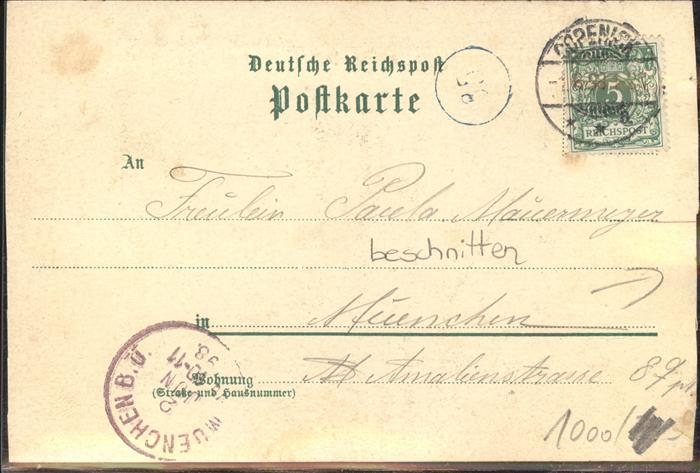 Deutsche Reichspost
Postkarte
CÖPENICK
5
REICHSPOST
An
Fräulein Paula Mauermeyer
beschnitten
in Muenchen
Wohnung
(Straße und Hausnummer)
Amalienstrasse 89
MUENCHEN B.O.
2
JUN
10-11
98
1000/